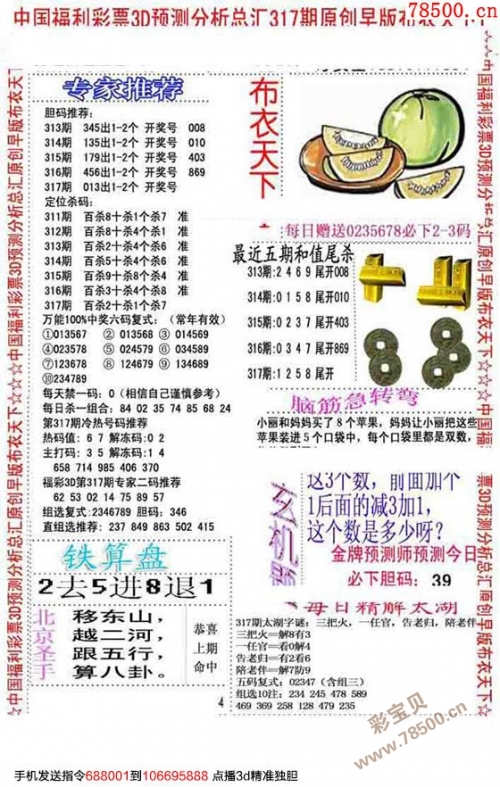 中国福利彩票3D预测分析总汇317期原创早版布衣天下
78500.cn
专家推荐
胆码推荐:
313期 345出1-2个 开奖号 008
314期 135出1-2个 开奖号 010
315期 179出1-2个 开奖号 403
316期 456出1-2个 开奖号 869
317期 013出1-2个 开奖号
定位杀码:
311期 百杀8十杀1个杀7 准
312期 百杀4十杀1个杀1 准
313期 百杀6十杀4个杀9 准
314期 百杀2十杀6个杀4 准
315期 百杀9十杀4个杀8 准
316期 百杀1十杀3个杀8 准
317期 百杀2十杀1个杀7
万能100%中奖六码复式:(常年有效)
①013567 ②013568 ③014569
④023578 ⑤024579 ⑥034589
⑦123678 ⑧124679 ⑨134689
⑩234789
每天禁一码:0(相信自己谨慎参考)
每日杀一组合: 84 02 35 74 85 68 24
第317期冷热号码推荐
热码值: 6 7 解冻码:0 2
主打码: 3 5 解冻码:1 4
658 714 985 406 370
福彩3D第317期专家二码推荐
62 53 02 14 75 89 57
组选复式:2346789 胆码: 346
直组选推荐: 237 849 863 502 415
铁算盘
2去5进8退1
北京圣手
移东山,
越二河,
跟五行,
算八卦。
恭喜
上期
命中
布衣天下
每日赠送0235678必下2-3码
最近五期和值尾杀
313期:2 4 6 9 尾开008
314期:0 1 5 8 尾开010
315期:0 2 3 7 尾开403
316期:0 3 4 7 尾开869
317期:1 2 5 8 尾开
脑筋急转弯
小丽和妈妈买了8个苹果,妈妈让小丽把这些
苹果装进5个口袋中,每个口袋里都是双数,
玄机
这3个数,前面加个
1后面的减3加1,
这个数是多少呀?
金牌预测师预测今日
必下胆码: 39
每日精解太湖
317期太湖字谜:三把火,一任官,告老归,陪老伴
三把火=解8有3
一任官=看0解4
告老归=有2看6
陪老伴=解7防9
五码复式:02347(含组三)
组选10注:234 245 478 589
469 369 258 128 479 235
4
中国福利彩票3D预测分析总汇原创早版布衣天下☆☆☆中国福利彩票3D预测分析总汇原创早版布衣天下☆
彩宝贝
www.78500.cn
手机发送指令688001到106695888 点播3d精准独胆